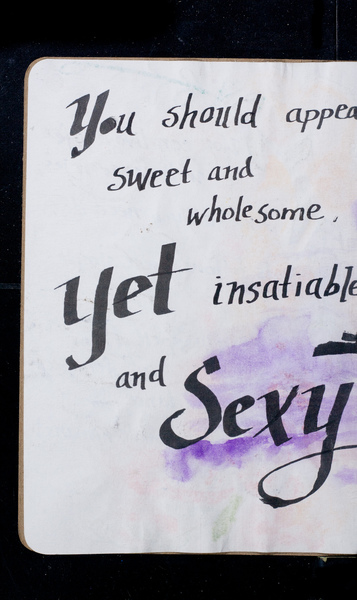 You should appea
sweet and
wholesome,
yet insatiable
and Sexy